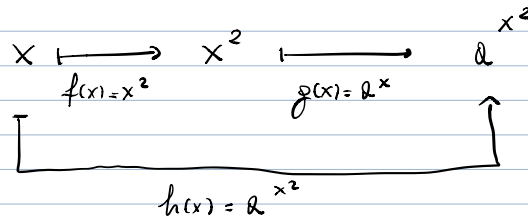 x ↦ x² ↦ 2^x²
f(x) = x² g(x) = 2^x
h(x) = 2^x²